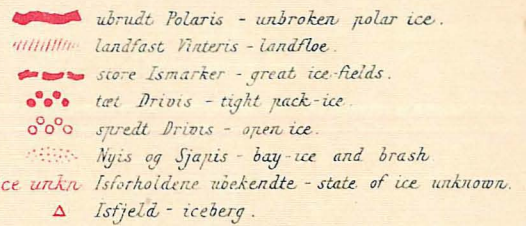 ubrudt Polaris - unbroken polar ice.
landfast Vinteris - landfloe.
store Ismarker - great ice-fields.
tæt Drivis - tight pack-ice.
spredt Drivis - open ice.
Nyis og Sjapis - bay-ice and brash
ce unkn Isforholdene ubekendte - state of ice unknown.
Isfjeld - iceberg.